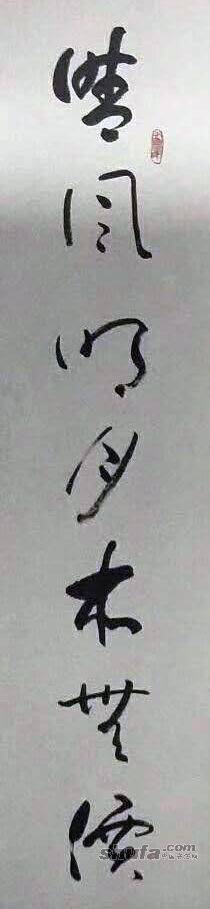 晴風明月本無價
shufa.com